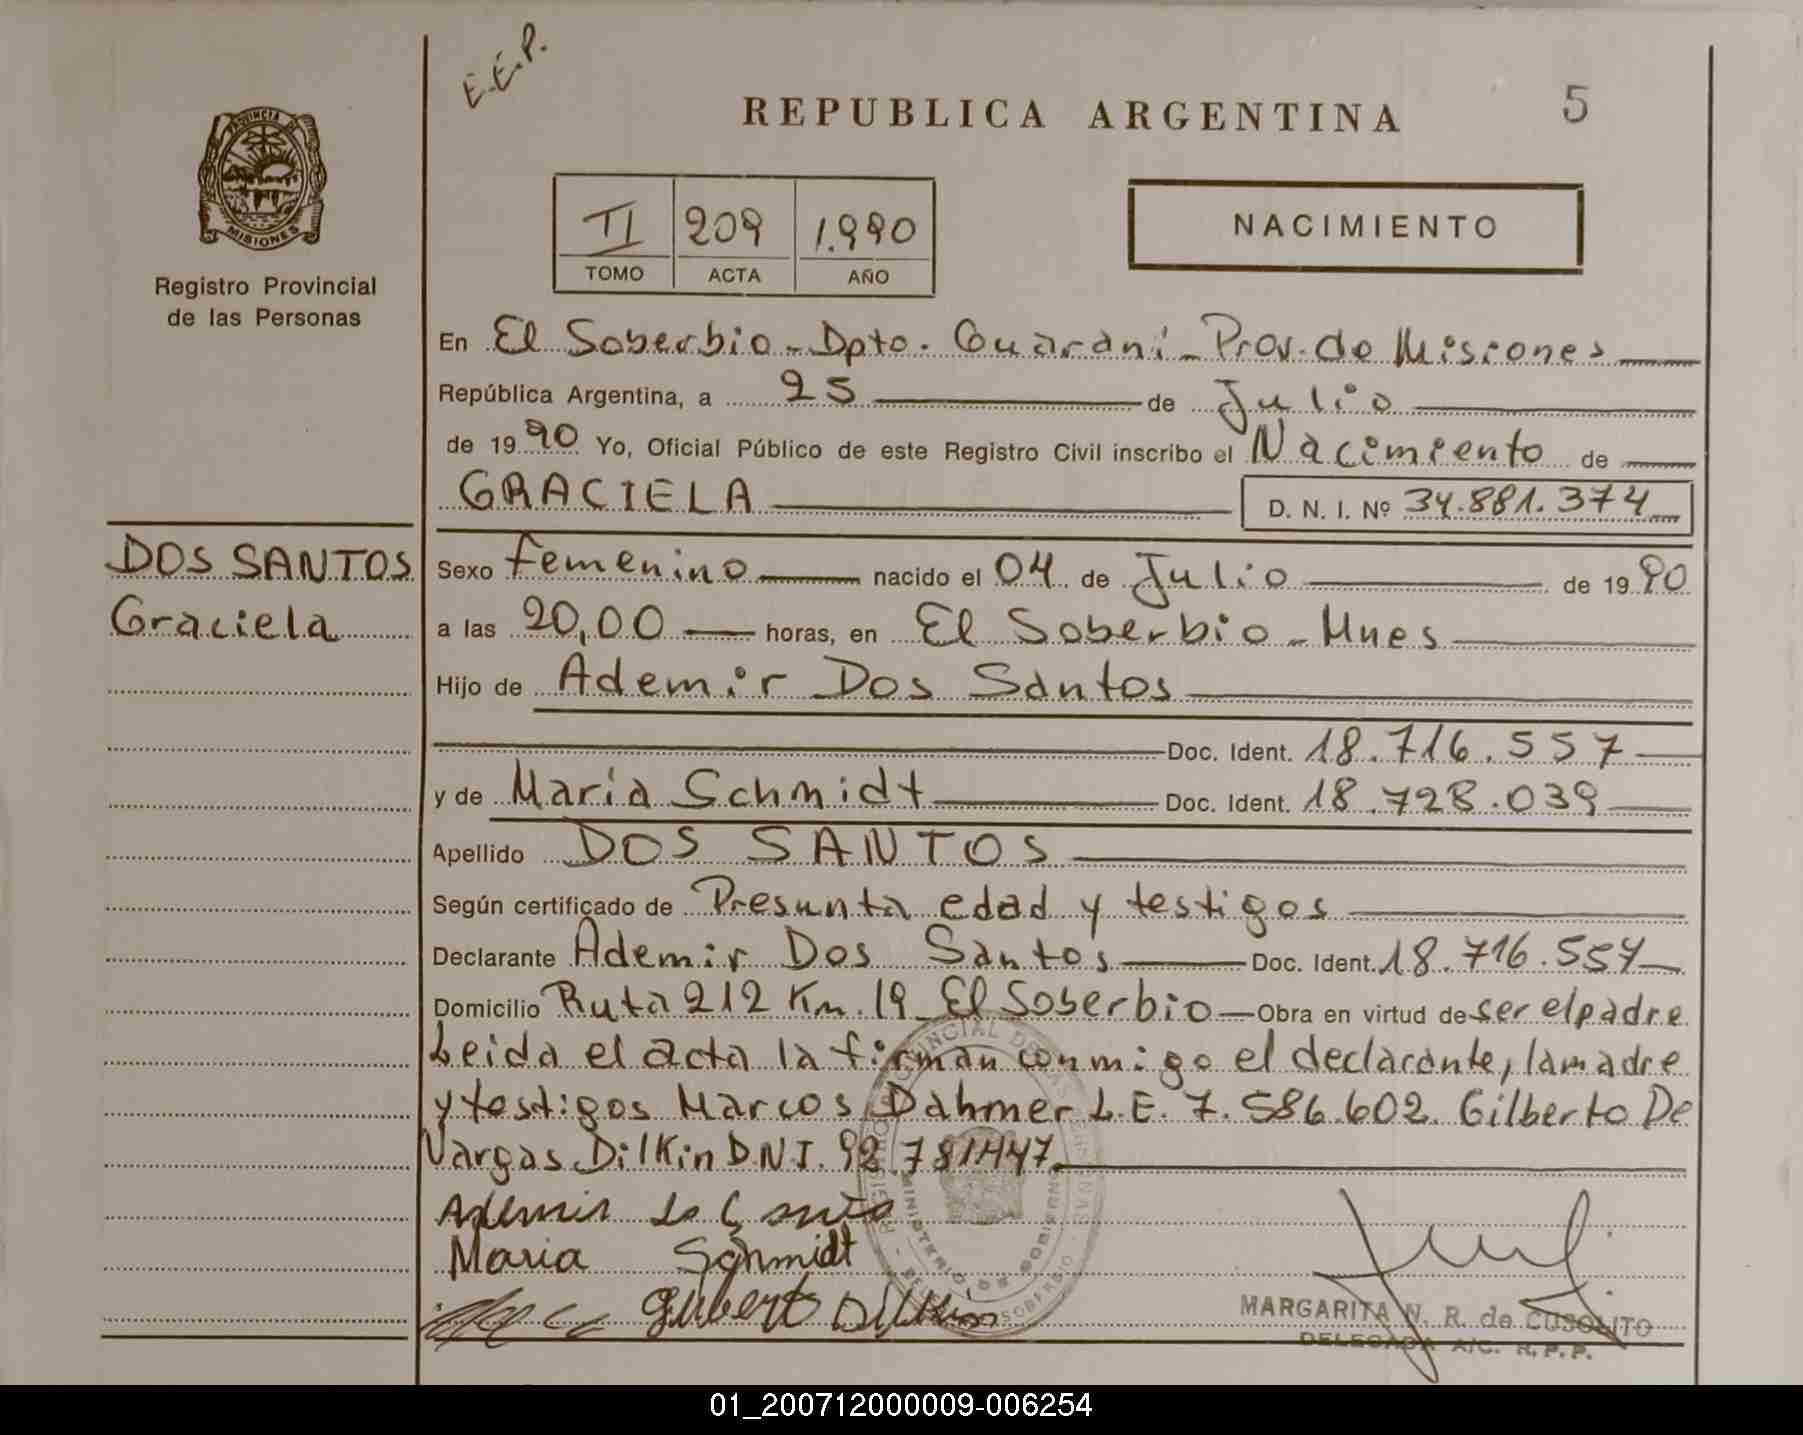 E.E.P.
REPUBLICA ARGENTINA
5
PROVINCIA DE
MISIONES
Registro Provincial
de las Personas
II 209 1.990
TOMO ACTA AÑO
NACIMIENTO
En El Soberbio - Dpto. Guaraní - Prov. de Misiones
República Argentina, a 25 de Julio
de 1990 Yo, Oficial Público de este Registro Civil inscribo el Nacimiento de
GRACIELA D. N. I. Nº 34.881.374
DOS SANTOS
Graciela
Sexo Femenino nacido el 04 de Julio de 1990
a las 20,00 horas, en El Soberbio - Mnes
Hijo de Ademir Dos Santos
Doc. Ident. 18.716.557
y de Maria Schmidt Doc. Ident. 18.728.039
Apellido DOS SANTOS
Según certificado de Presunta edad y testigos
Declarante Ademir Dos Santos Doc. Ident. 18.716.557
Domicilio Ruta 212 Km. 19 El Soberbio Obra en virtud de ser el padre
Leida el acta la firman conmigo el declarante, la madre
y testigos Marcos Dahmer L.E. 7.586.602. Gilberto De
Vargas Dilkin D.N.I. 92.781447
Maria Schmidt
Gilberto Dilkin
MARGARITA N. R. de CUSOLITO
DELEGADA A/C. R.P.P.
MINISTERIO DE GOBIERNO
01_200712000009-006254